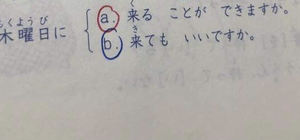 く
a. 来る ことが できますか。
くようび
木曜日に
き
b. 来ても いいですか。